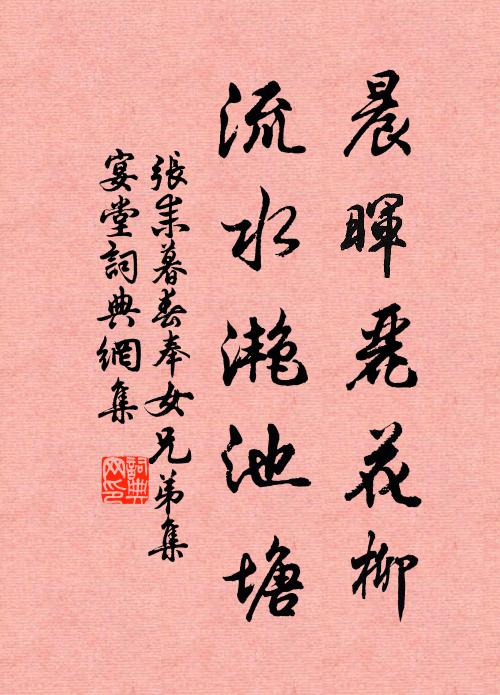 晨暉麗花柳
流水灔池塘
張耒暮春奉女兄弟集
宴堂詞典網集
詞典
网印